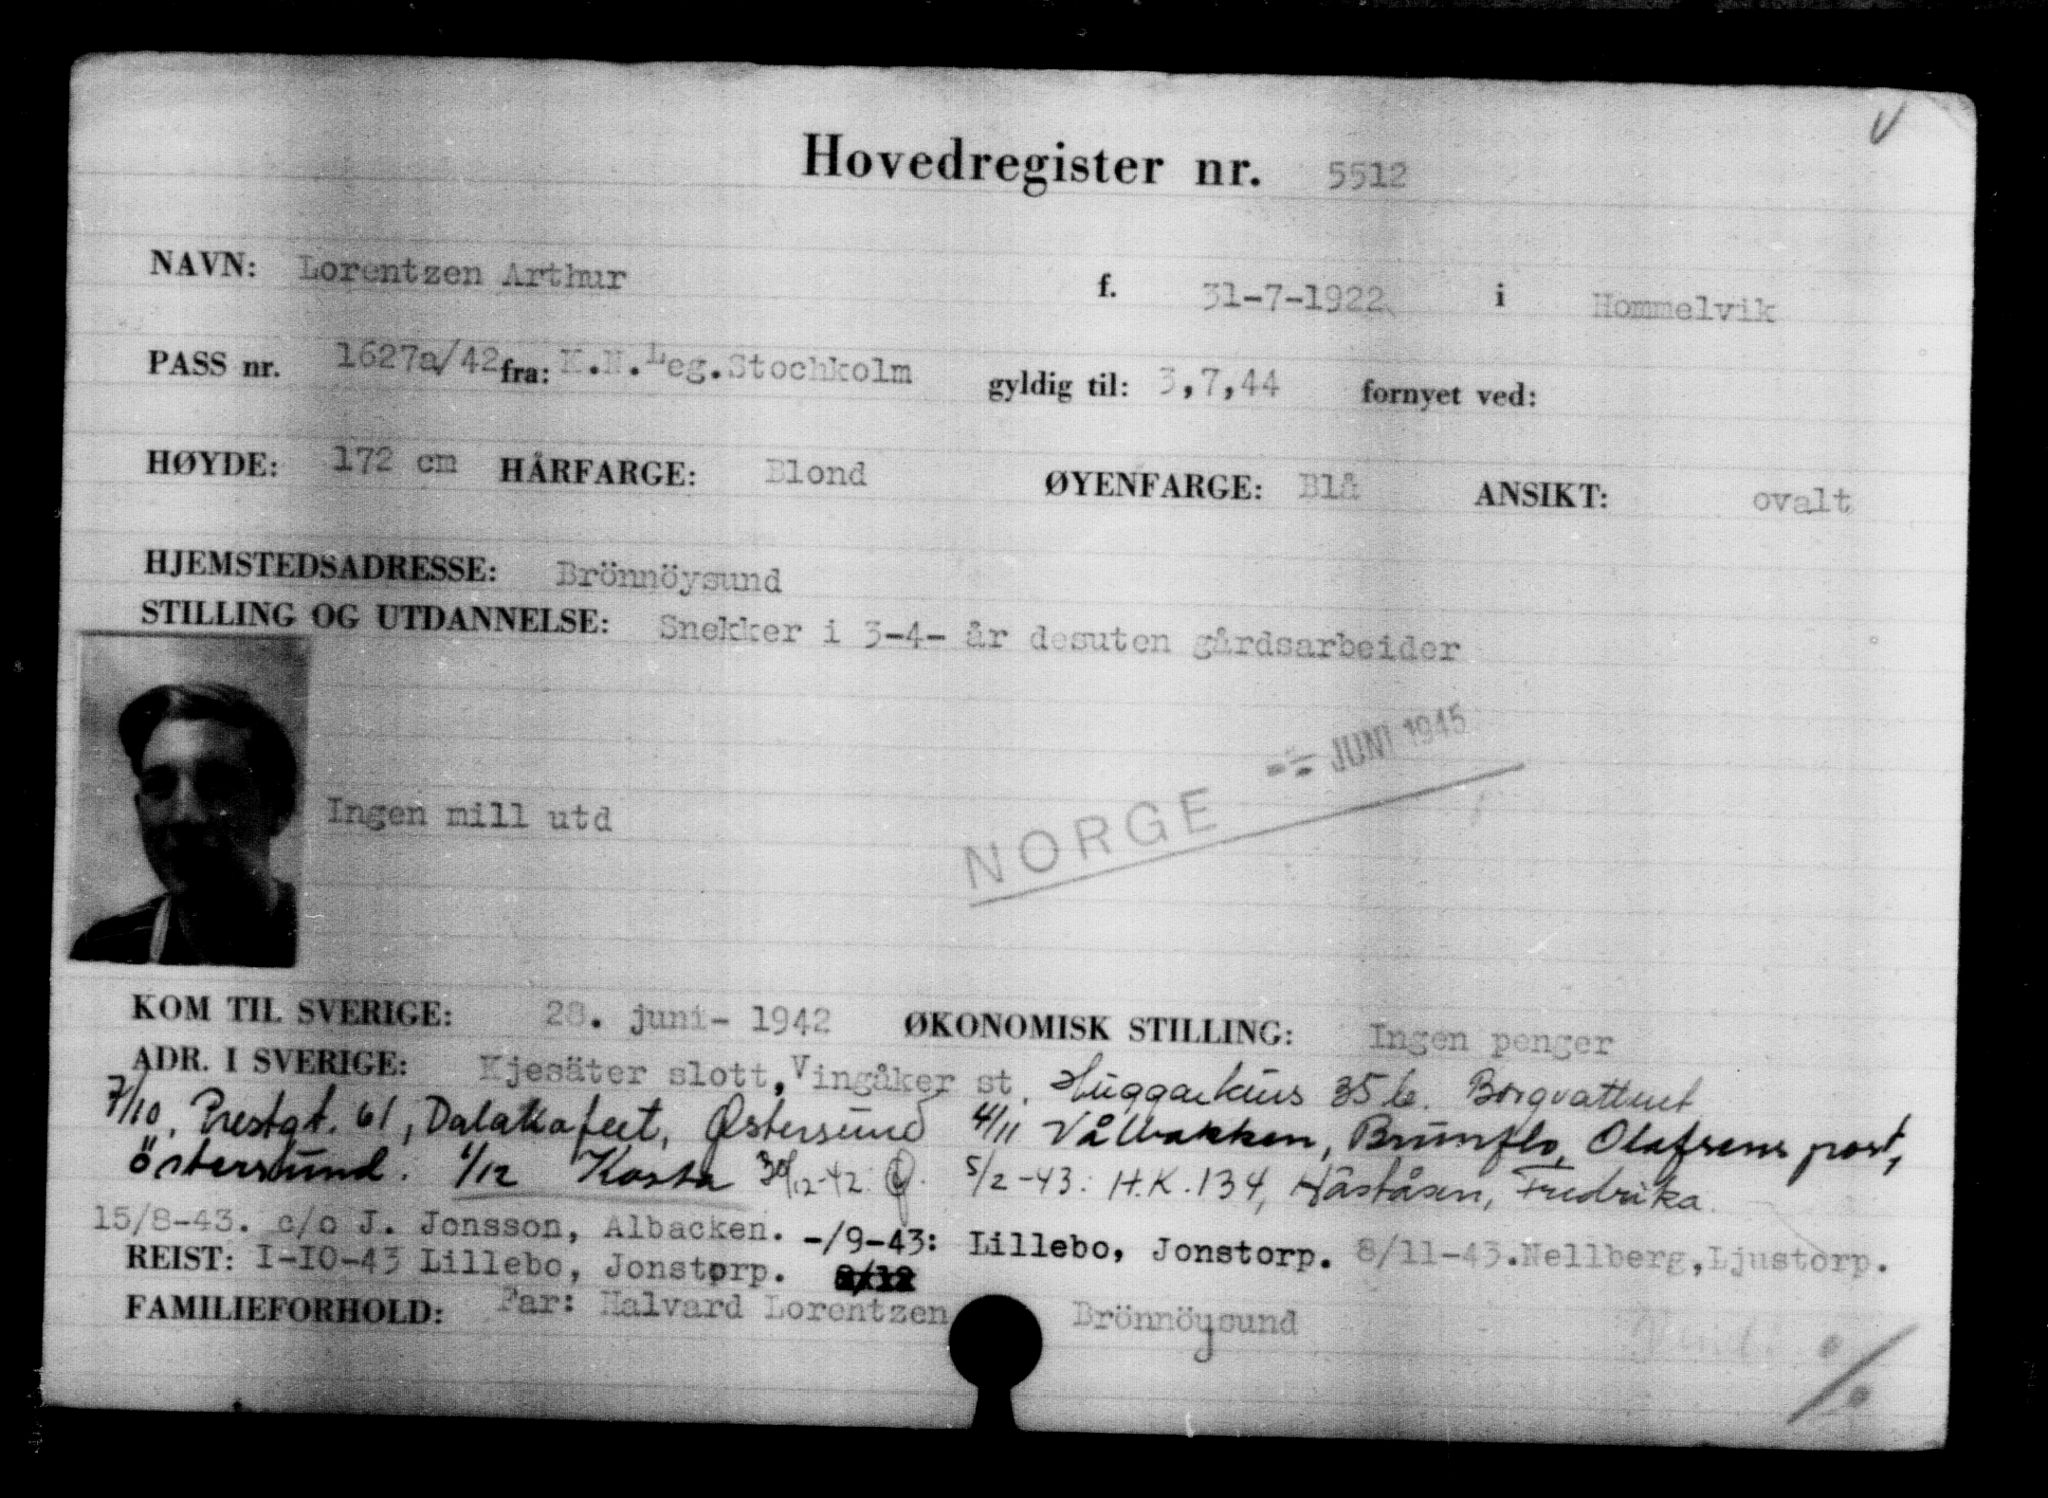 Hovedregister nr. 5512
NAVN: Lorentzen Arthur f. 31-7-1922 i Hommelvik
PASS nr. 1627a/42 fra: K.N.Leg.Stochkolm gyldig til: 3,7,44 fornyet ved:
HØYDE: 172 cm HÅRFARGE: Blond ØYENFARGE: Blå ANSIKT: ovalt
HJEMSTEDSADRESSE: Brönnöysund
STILLING OG UTDANNELSE: Snekker i 3-4- år desuten gårdsarbeider
NORGE JUNI 1945
Ingen mill utd
KOM TIL SVERIGE: 28. juni- 1942 ØKONOMISK STILLING: Ingen penger
ADR. I SVERIGE: Kjesäter slott, Vingåker st. Huggarkurs 35 b. Borgvattnet
7/10, Prestgt. 61, Dalakafeet, Østersund 4/11 Vålbakken, Brunflo, Olafsens post,
Östersund. 1/12 Kosta 30/12-42. 5/2-43: H.K. 134, Håståsen, Fredrika.
15/8-43. c/o J. Jonsson, Albacken. -/9-43: Lillebo, Jonstorp. 8/11-43.Nellberg,Ljustorp.
REIST: I-IO-43 Lillebo, Jonstorp.
FAMILIEFORHOLD: Far: Halvard Lorentzen Brönnöysund